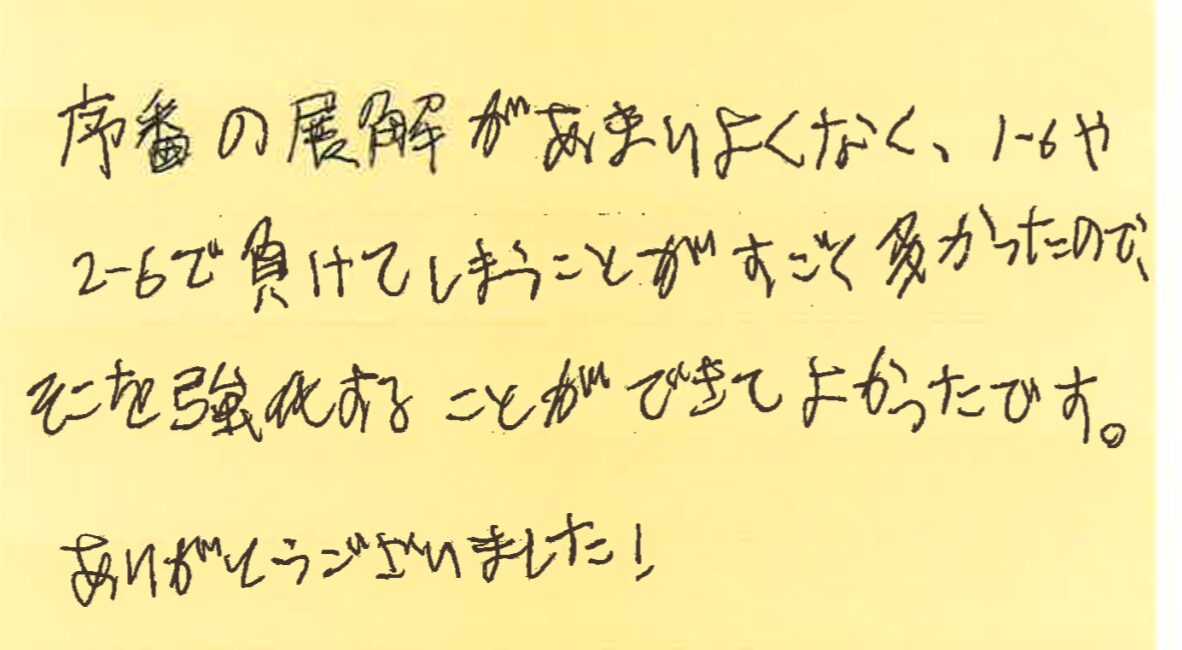 序番の展解があまりよくなく、1-6や
2-6で負けてしまうことがすごく多かったので、
そこを強化することができてよかったです。
ありがとうございました!